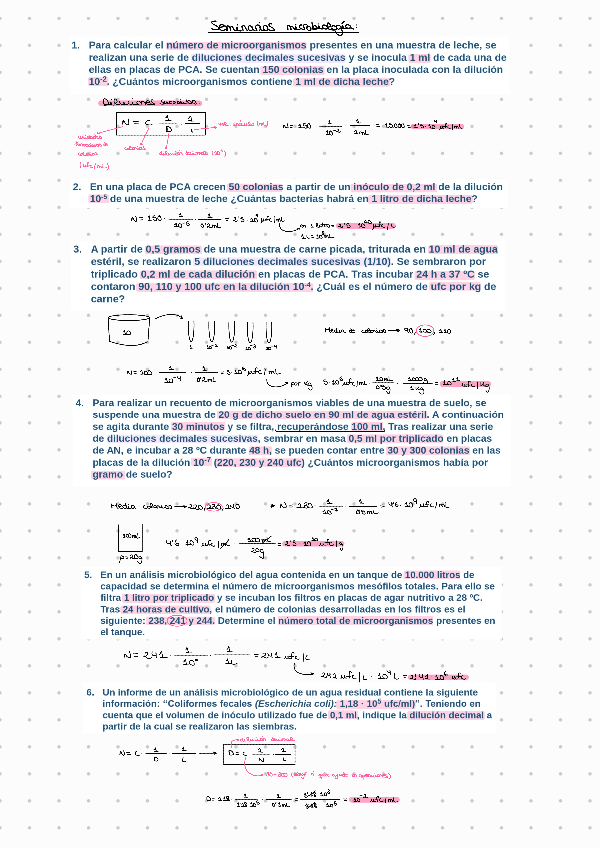 Seminarios microbiología:
1. Para calcular el número de microorganismos presentes en una muestra de leche, se
realizan una serie de diluciones decimales sucesivas y se inocula 1 ml de cada una de
ellas en placas de PCA. Se cuentan 150 colonias en la placa inoculada con la dilución
10-2. ¿Cuántos microorganismos contiene 1 ml de dicha leche?
Diluciones sucesivas
N = C · 1/D · 1/L
colonias
dilución decimal (10x)
N= 150 · 1/10-2 · 1/1mL = 15000 = 1'5·104 ufc/mL
2. En una placa de PCA crecen 50 colonias a partir de un inóculo de 0,2 ml de la dilución
10-5 de una muestra de leche ¿Cuántas bacterias habrá en 1 litro de dicha leche?
3. A partir de 0,5 gramos de una muestra de carne picada, triturada en 10 ml de agua
estéril, se realizaron 5 diluciones decimales sucesivas (1/10). Se sembraron por
triplicado 0,2 ml de cada dilución en placas de PCA. Tras incubar 24 h a 37 ºC se
contaron 90, 110 y 100 ufc en la dilución 10-4. ¿Cuál es el número de ufc por kg de
carne?
10
1 10-1 10-2 10-3 10-4
Media de colonias → 90, 100, 110
N= 100 · 1/10-4 · 1/0'2mL = 5·106 ufc/mL
por Kg 5·106 ufc/mL · 10mL/0'5g · 1000g/1Kg = 1011 ufc/Kg
4. Para realizar un recuento de microorganismos viables de una muestra de suelo, se
suspende una muestra de 20 g de dicho suelo en 90 ml de agua estéril. A continuación
se agita durante 30 minutos y se filtra, recuperándose 100 ml. Tras realizar una serie
de diluciones decimales sucesivas, sembrar en masa 0,5 ml por triplicado en placas
de AN, e incubar a 28 ºC durante 48 h, se pueden contar entre 30 y 300 colonias en las
placas de la dilución 10-7 (220, 230 y 240 ufc) ¿Cuántos microorganismos había por
gramo de suelo?
Media colonias → 220, 230, 240
100mL
4'6 · 109 ufc/mL · 100mL/20g = 2'3 · 1010 ufc/g
p=20g
5. En un análisis microbiológico del agua contenida en un tanque de 10.000 litros de
capacidad se determina el número de microorganismos mesófilos totales. Para ello se
filtra 1 litro por triplicado y se incuban los filtros en placas de agar nutritivo a 28 ºC.
Tras 24 horas de cultivo, el número de colonias desarrolladas en los filtros es el
siguiente: 238, 241 y 244. Determine el número total de microorganismos presentes en
el tanque.
N= 241 · 1/100 · 1/1L = 241 ufc/L
241 ufc/L · 104 L = 2'41·106 ufc
6. Un informe de un análisis microbiológico de un agua residual contiene la siguiente
información: “Coliformes fecales (Escherichia coli): 1,18 · 105 ufc/ml)”. Teniendo en
cuenta que el volumen de inóculo utilizado fue de 0,1 ml, indique la dilución decimal a
partir de la cual se realizaron las siembras.
dilución decimal
N= C · 1/D · 1/L → D= C · 1/N · 1/L